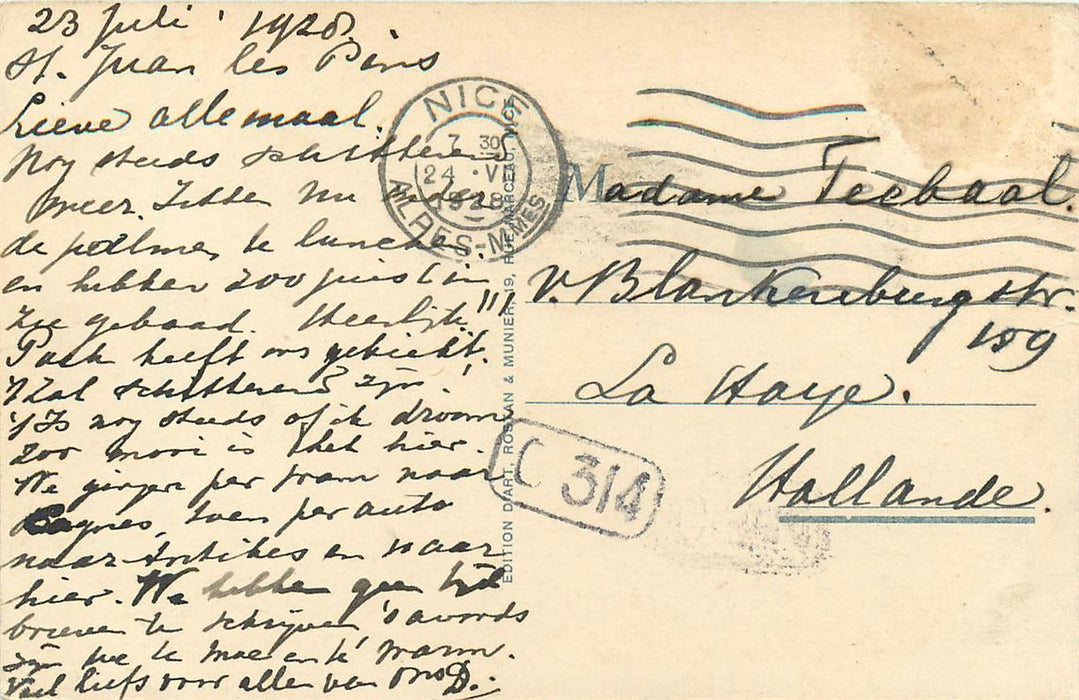 23 Juli 1928.
St. Juan les Pins
Lieve allemaal.
Nog steeds schitterend
weer. Zitten nu onder
de palmen te lunchen
en hebben zoo juist in
zee gebaad. Heerlijk!!!
heeft ons gebiecht.
't Zal schitterend zijn!
't Is nog steeds of ik droom
zoo mooi is het hier.
We gingen per tram naar
Cagnes, toen per auto
naar Antibes en naar
hier. We hebben geen tijd
brieven te schrijven 's avonds
zijn we te moe en te warm.
Veel liefs voor allen van ons D.
NICE
7 30
24 · VI
1928
ALPES-MMES
EDITION D'ART, ROSTAN & MUNIER, 19, RUE MARCEAU, NICE
Madame Teebaal.
v. Blankenburgstr.
159
La Haye.
Hollande.
C 314